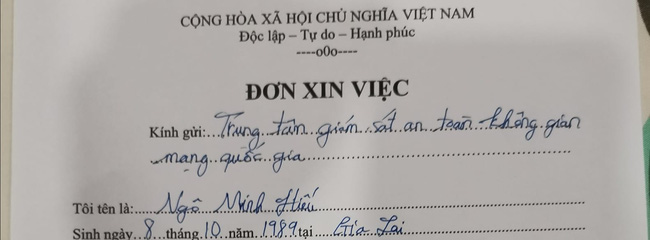 CỘNG HÒA XÃ HỘI CHỦ NGHĨA VIỆT NAM
Độc lập – Tự do – Hạnh phúc
----o0o----
ĐƠN XIN VIỆC
Kính gửi: Trung tâm giám sát an toàn không gian
mạng quốc gia
Tôi tên là: Ngô Minh Hiếu
Sinh ngày 8 tháng 10 năm 1989 tại Gia Lai